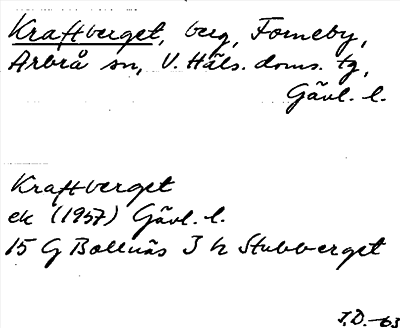 Kraftberget, berg, Forneby,
Arbrå sn, V. Häls. doms. tg,
Gävl. l.
Kraftberget
ek (1957) Gävl. l.
15 G Bollnäs J h Stubberget
J.D. -63